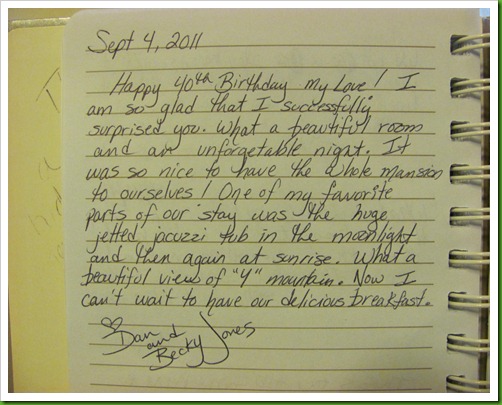 Sept 4, 2011
Happy 40th Birthday my Love! I
am so glad that I successfully
surprised you. What a beautiful room
and an unforgetable night. It
was so nice to have the whole mansion
to ourselves! One of my favorite
parts of our stay was the huge
jetted jacuzzi tub in the moonlight
and then again at sunrise. What a
beautiful view of "Y" mountain. Now I
can't wait to have our delicious breakfast.
♡Dan
and
Becky Jones